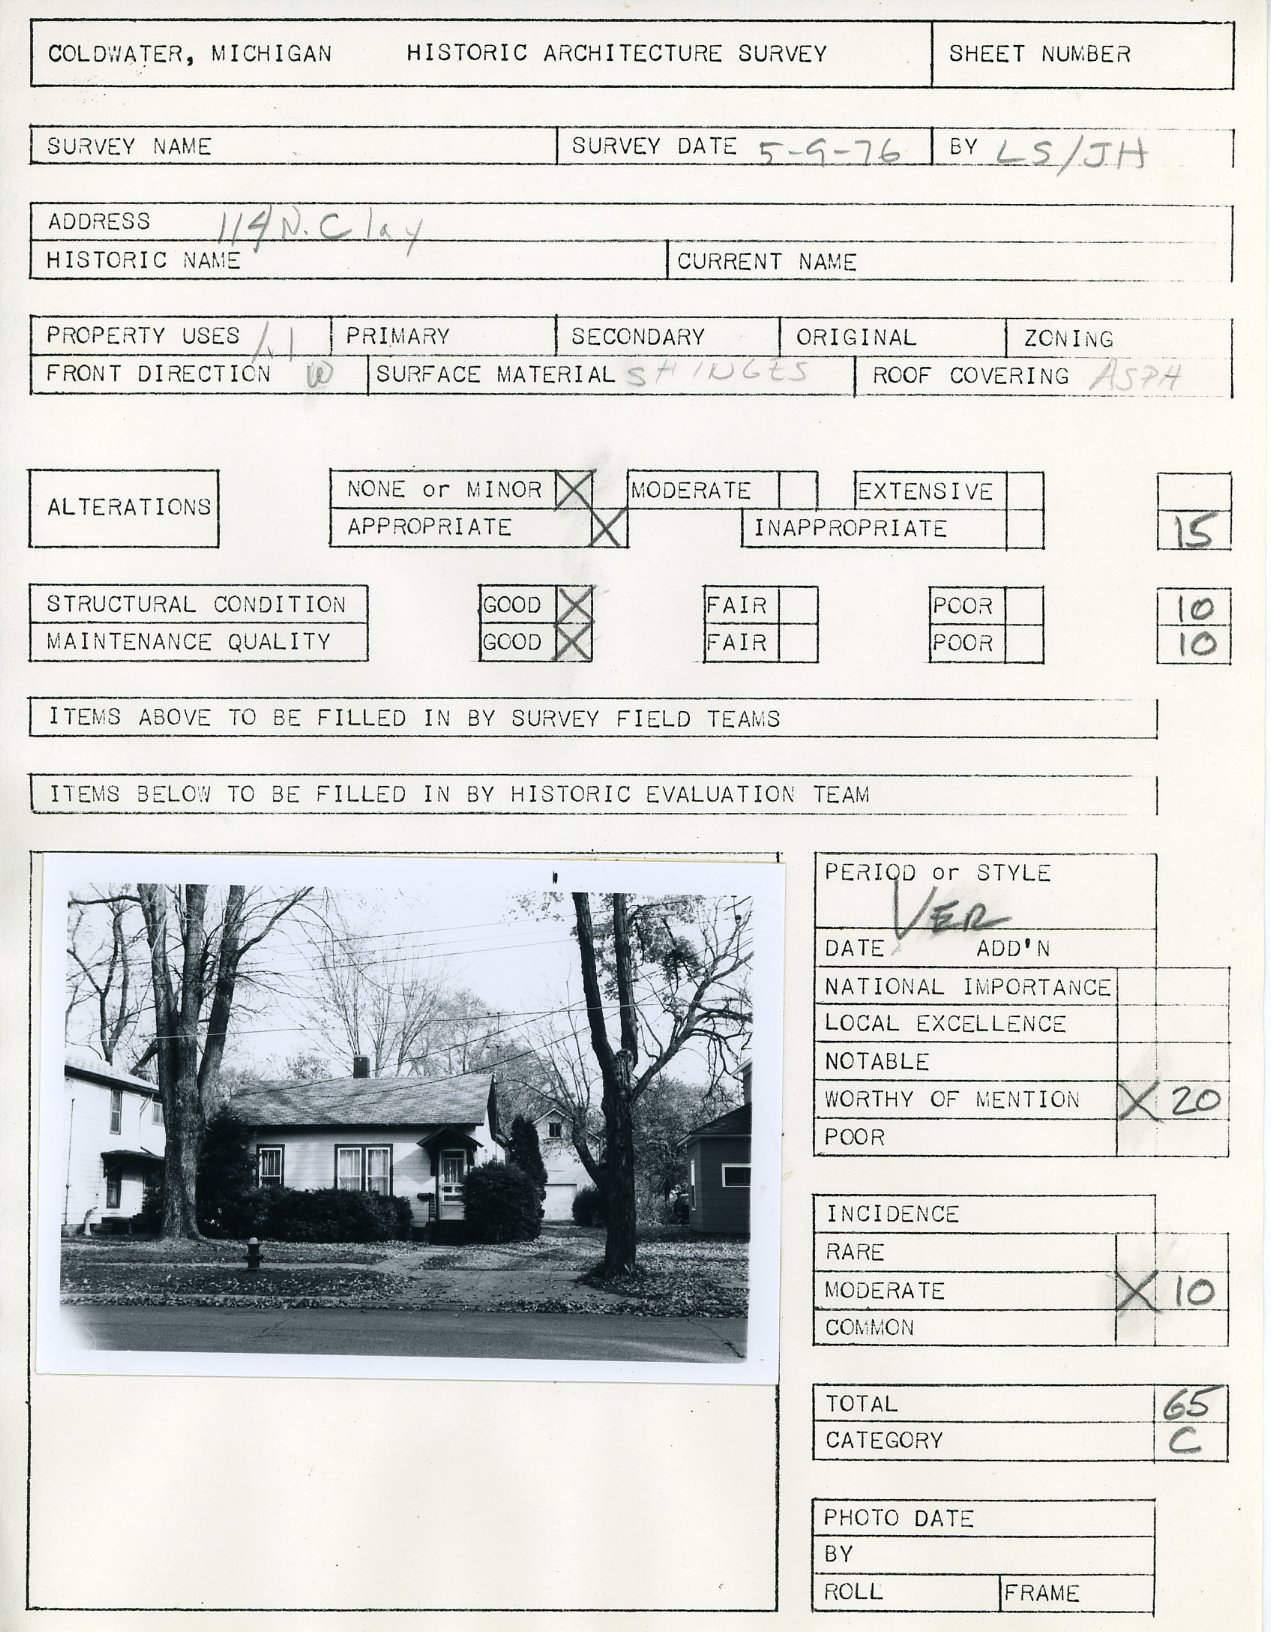 COLDWATER, MICHIGAN HISTORIC ARCHITECTURE SURVEY SHEET NUMBER
SURVEY NAME SURVEY DATE 5-9-76 BY LS/JH
ADDRESS 114 N. Clay
HISTORIC NAME CURRENT NAME
PROPERTY USES 1.1 PRIMARY SECONDARY ORIGINAL ZONING
FRONT DIRECTION W SURFACE MATERIAL SHINGES ROOF COVERING ASPH
ALTERATIONS
NONE or MINOR X MODERATE EXTENSIVE
APPROPRIATE X INAPPROPRIATE 15
STRUCTURAL CONDITION GOOD X FAIR POOR 10
MAINTENANCE QUALITY GOOD X FAIR POOR 10
ITEMS ABOVE TO BE FILLED IN BY SURVEY FIELD TEAMS
ITEMS BELOW TO BE FILLED IN BY HISTORIC EVALUATION TEAM
PERIOD or STYLE
VER
DATE ADD'N
NATIONAL IMPORTANCE
LOCAL EXCELLENCE
NOTABLE
WORTHY OF MENTION X 20
POOR
INCIDENCE
RARE
MODERATE X 10
COMMON
TOTAL 65
CATEGORY C
PHOTO DATE
BY
ROLL FRAME